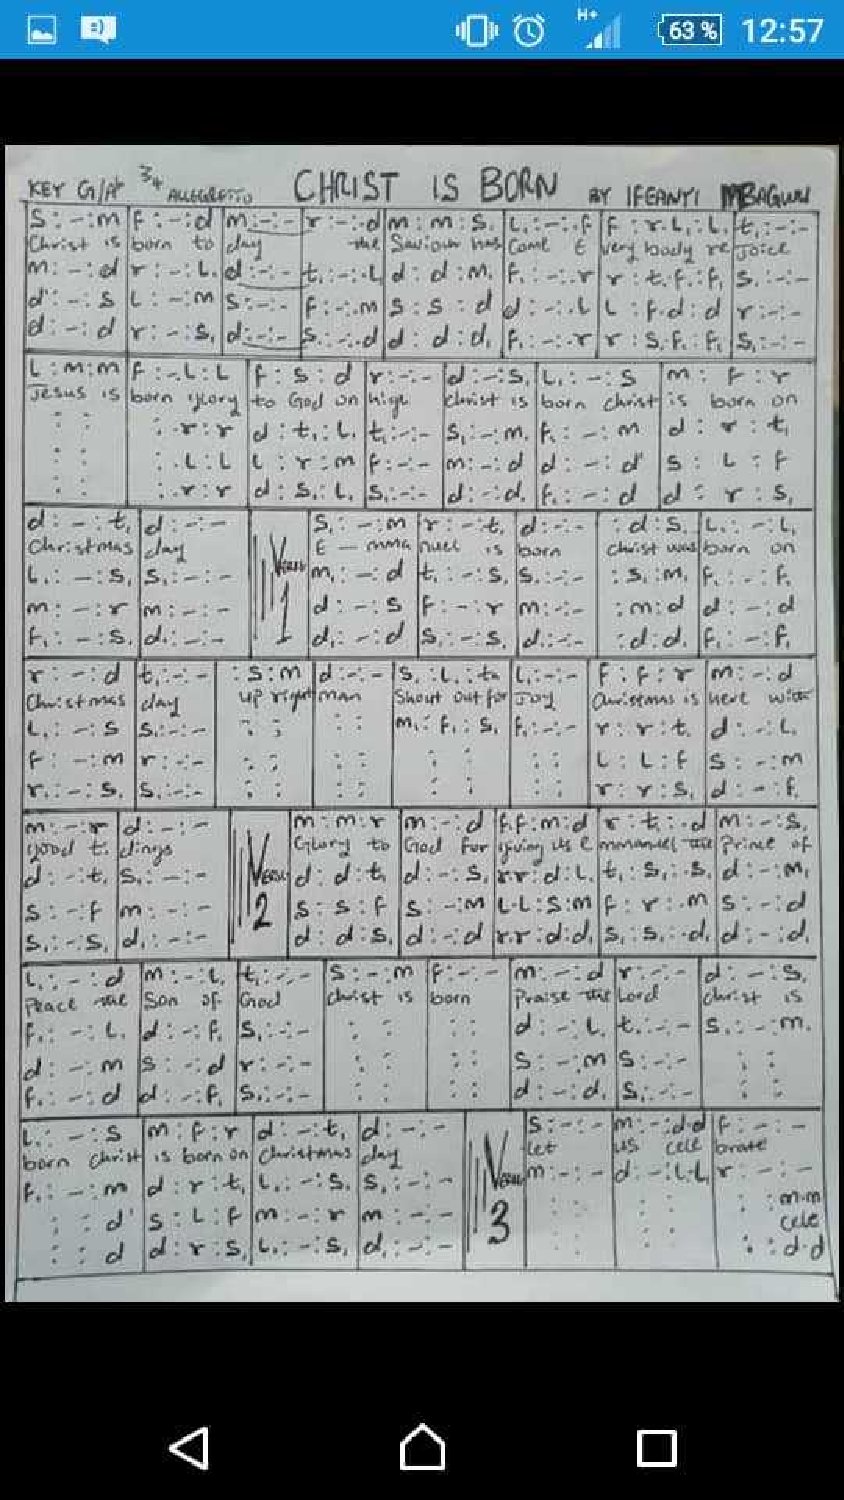 H+ 63 % 12:57
KEY G/A♭ 3/4 ALLEGRETTO CHRIST IS BORN BY IFEANYI MBAGWU
s : - : m | f : - : d | m : - : - | r : - : d | m : m : s, | l, : - : f | f : r . l, : l, | t, : - : -
Christ is born to day the Saviour has come E very body re joice
m : - : d | r : - : l, | d : - : - | t, : - : l, | d : d : m, | f, : - : r | r : t, . f, : f, | s, : - : -
d' : - : s | l : - : m | s : - : - | f : - : m | s : s : d | d : - : l | l : f . d : d | r : - : -
d : - : d | r : - : s, | d : - : - | s, : - : d | d : d : d, | f, : - : r | r : s, . f, : f, | s, : - : -
l : m : m | f : - . l : l | f : s : d | r : - : - | d : - : s, | l, : - : s | m : f : r
Jesus is born glory to God on high christ is born christ is born on
: : | : . r : r | d : t, : l, | t, : - : - | s, : - : m, | f, : - : m | d : r : t,
: : | : . l : l | l : r : m | f : - : - | m : - : d | d : - : d' | s : l : f
: : | : . r : r | d : s, : l, | s, : - : - | d : - : d, | f, : - : d | d : r : s,
d : - : t, | d : - : - | VERSE 1 | s, : - : m | r : - : t, | d : - : - | : d : s, | l, : - : l,
Christmas day E - mma nuel is born christ was born on
l, : - : s, | s, : - : - | m, : - : d | t, : - : s, | s, : - : - | : s, : m, | f, : - : f,
m : - : r | m : - : - | d : - : s | f : - : r | m : - : - | : m : d | d : - : d
f, : - : s, | d, : - : - | d, : - : d | s, : - : s, | d, : - : - | : d : d, | f, : - : f,
r : - : d | t, : - : - | : s : m | d : - : - | s, : l, : ta | l, : - : - | f : f : r | m : - : d
Christmas day up right man Shout out for Joy Christmas is here with
l, : - : s | s, : - : - | : : | : : | m, : f, : s, | f, : - : - | r : r : t, | d : - : l,
f : - : m | r : - : - | : : | : : | : : | : : | l : l : f | s : - : m
r, : - : s, | s, : - : - | : : | : : | : : | : : | r : r : s, | d : - : f,
m : - : r | d : - : - | VERSE 2 | m : m : r | m : - : d | f . f : m : d | r : t, : . d | m : - : s,
good ti dings Glory to God for giving us E mmanuel the Prince of
d : - : t, | s, : - : - | d : d : t, | d : - : s, | r r : d : l, | t, : s, : . s, | d : - : m,
s : - : f | m : - : - | s : s : f | s : - : m | l . l : s : m | f : r : . m | s : - : d
s, : - : s, | d, : - : - | d : d : s, | d : - : d | r . r : d : d, | s, : s, : . d, | d : - : d,
l, : - : d | m : - : l, | t, : - : - | s : - : m | f : - : - | m : - : d | r : - : - | d : - : s,
Peace the Son of God christ is born Praise the Lord christ is
f, : - : l, | d : - : f, | s, : - : - | : : | : : | d : - : l, | t, : - : - | s, : - : m,
d : - : m | s : - : d | r : - : - | : : | : : | s : - : m | s : - : - | : :
f, : - : d | d : - : f, | s, : - : - | : : | : : | d : - : d, | s, : - : - | : :
l, : - : s | m : f : r | d : - : t, | d : - : - | VERSE 3 | s : - : - | m : - : d . d | f : - : -
born christ is born on Christmas day let us cele brate
f, : - : m | d : r : t, | l, : - : s, | s, : - : - | m : - : - | d : - : l, . l, | r : - : -
: : d' | s : l : f | m : - : r | m : - : - | : : | : : | : : m . m
cele
: : d | d : r : s, | l, : - : s, | d, : - : - | : : | : : | : : d . d